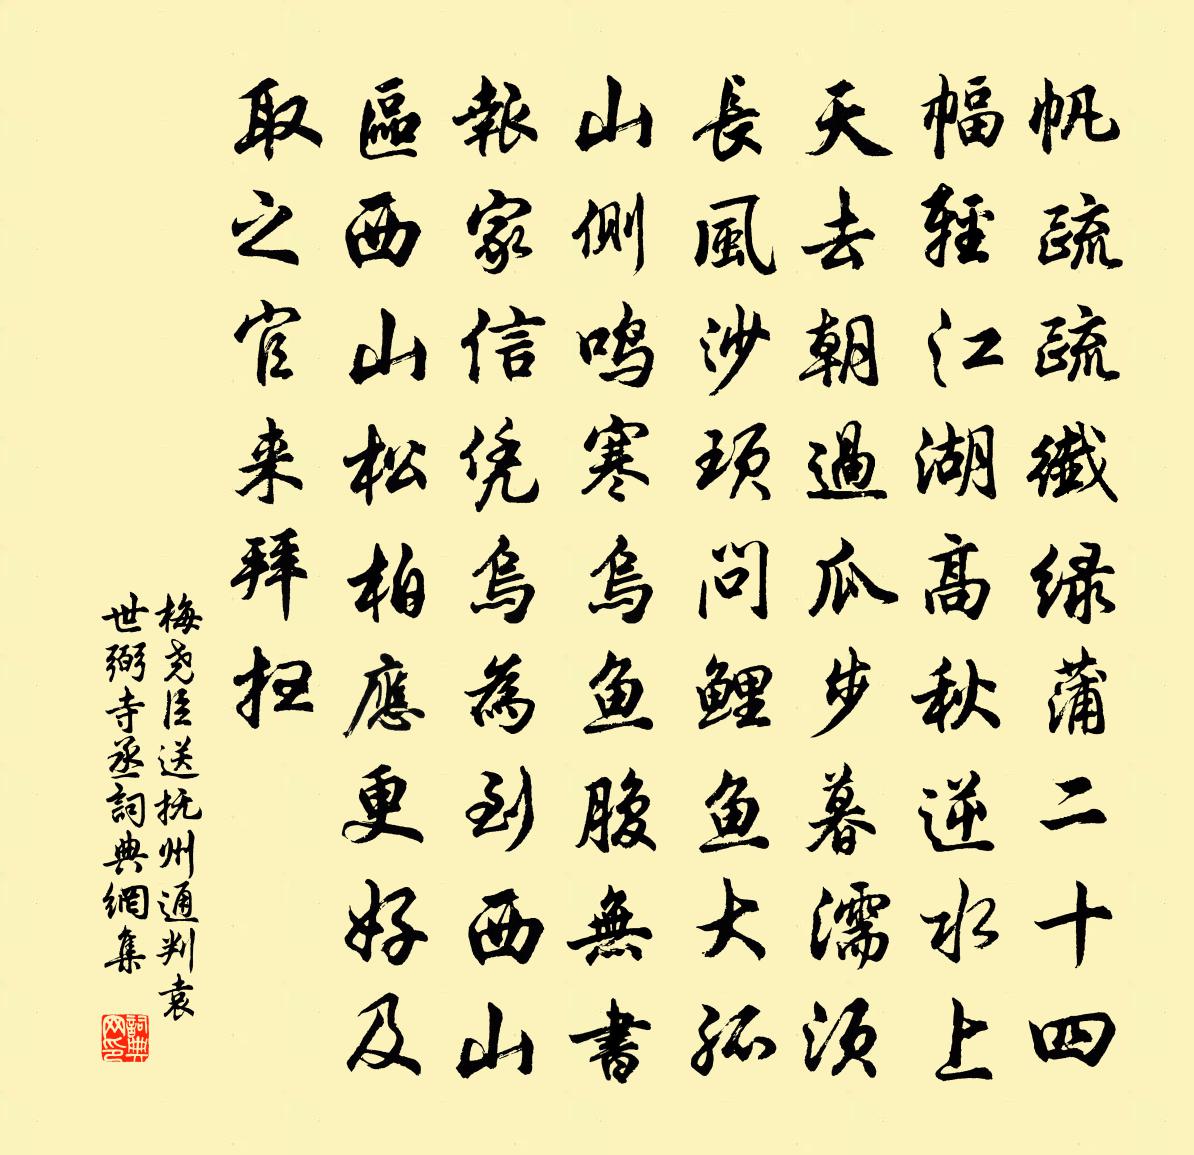 帆疏疏纖绿蒲二十四
幅輕江湖高秋逆水上
天去朝過瓜步暮濡须
長風沙项问鲤鱼大孤
山側鸣寒烏鱼腹無書
報家信凭烏為到西山
區西山松柏應更好及
取之官来拜扫
梅尧臣送抚州通判袁
世弼寺丞詞典網集
詞典網印